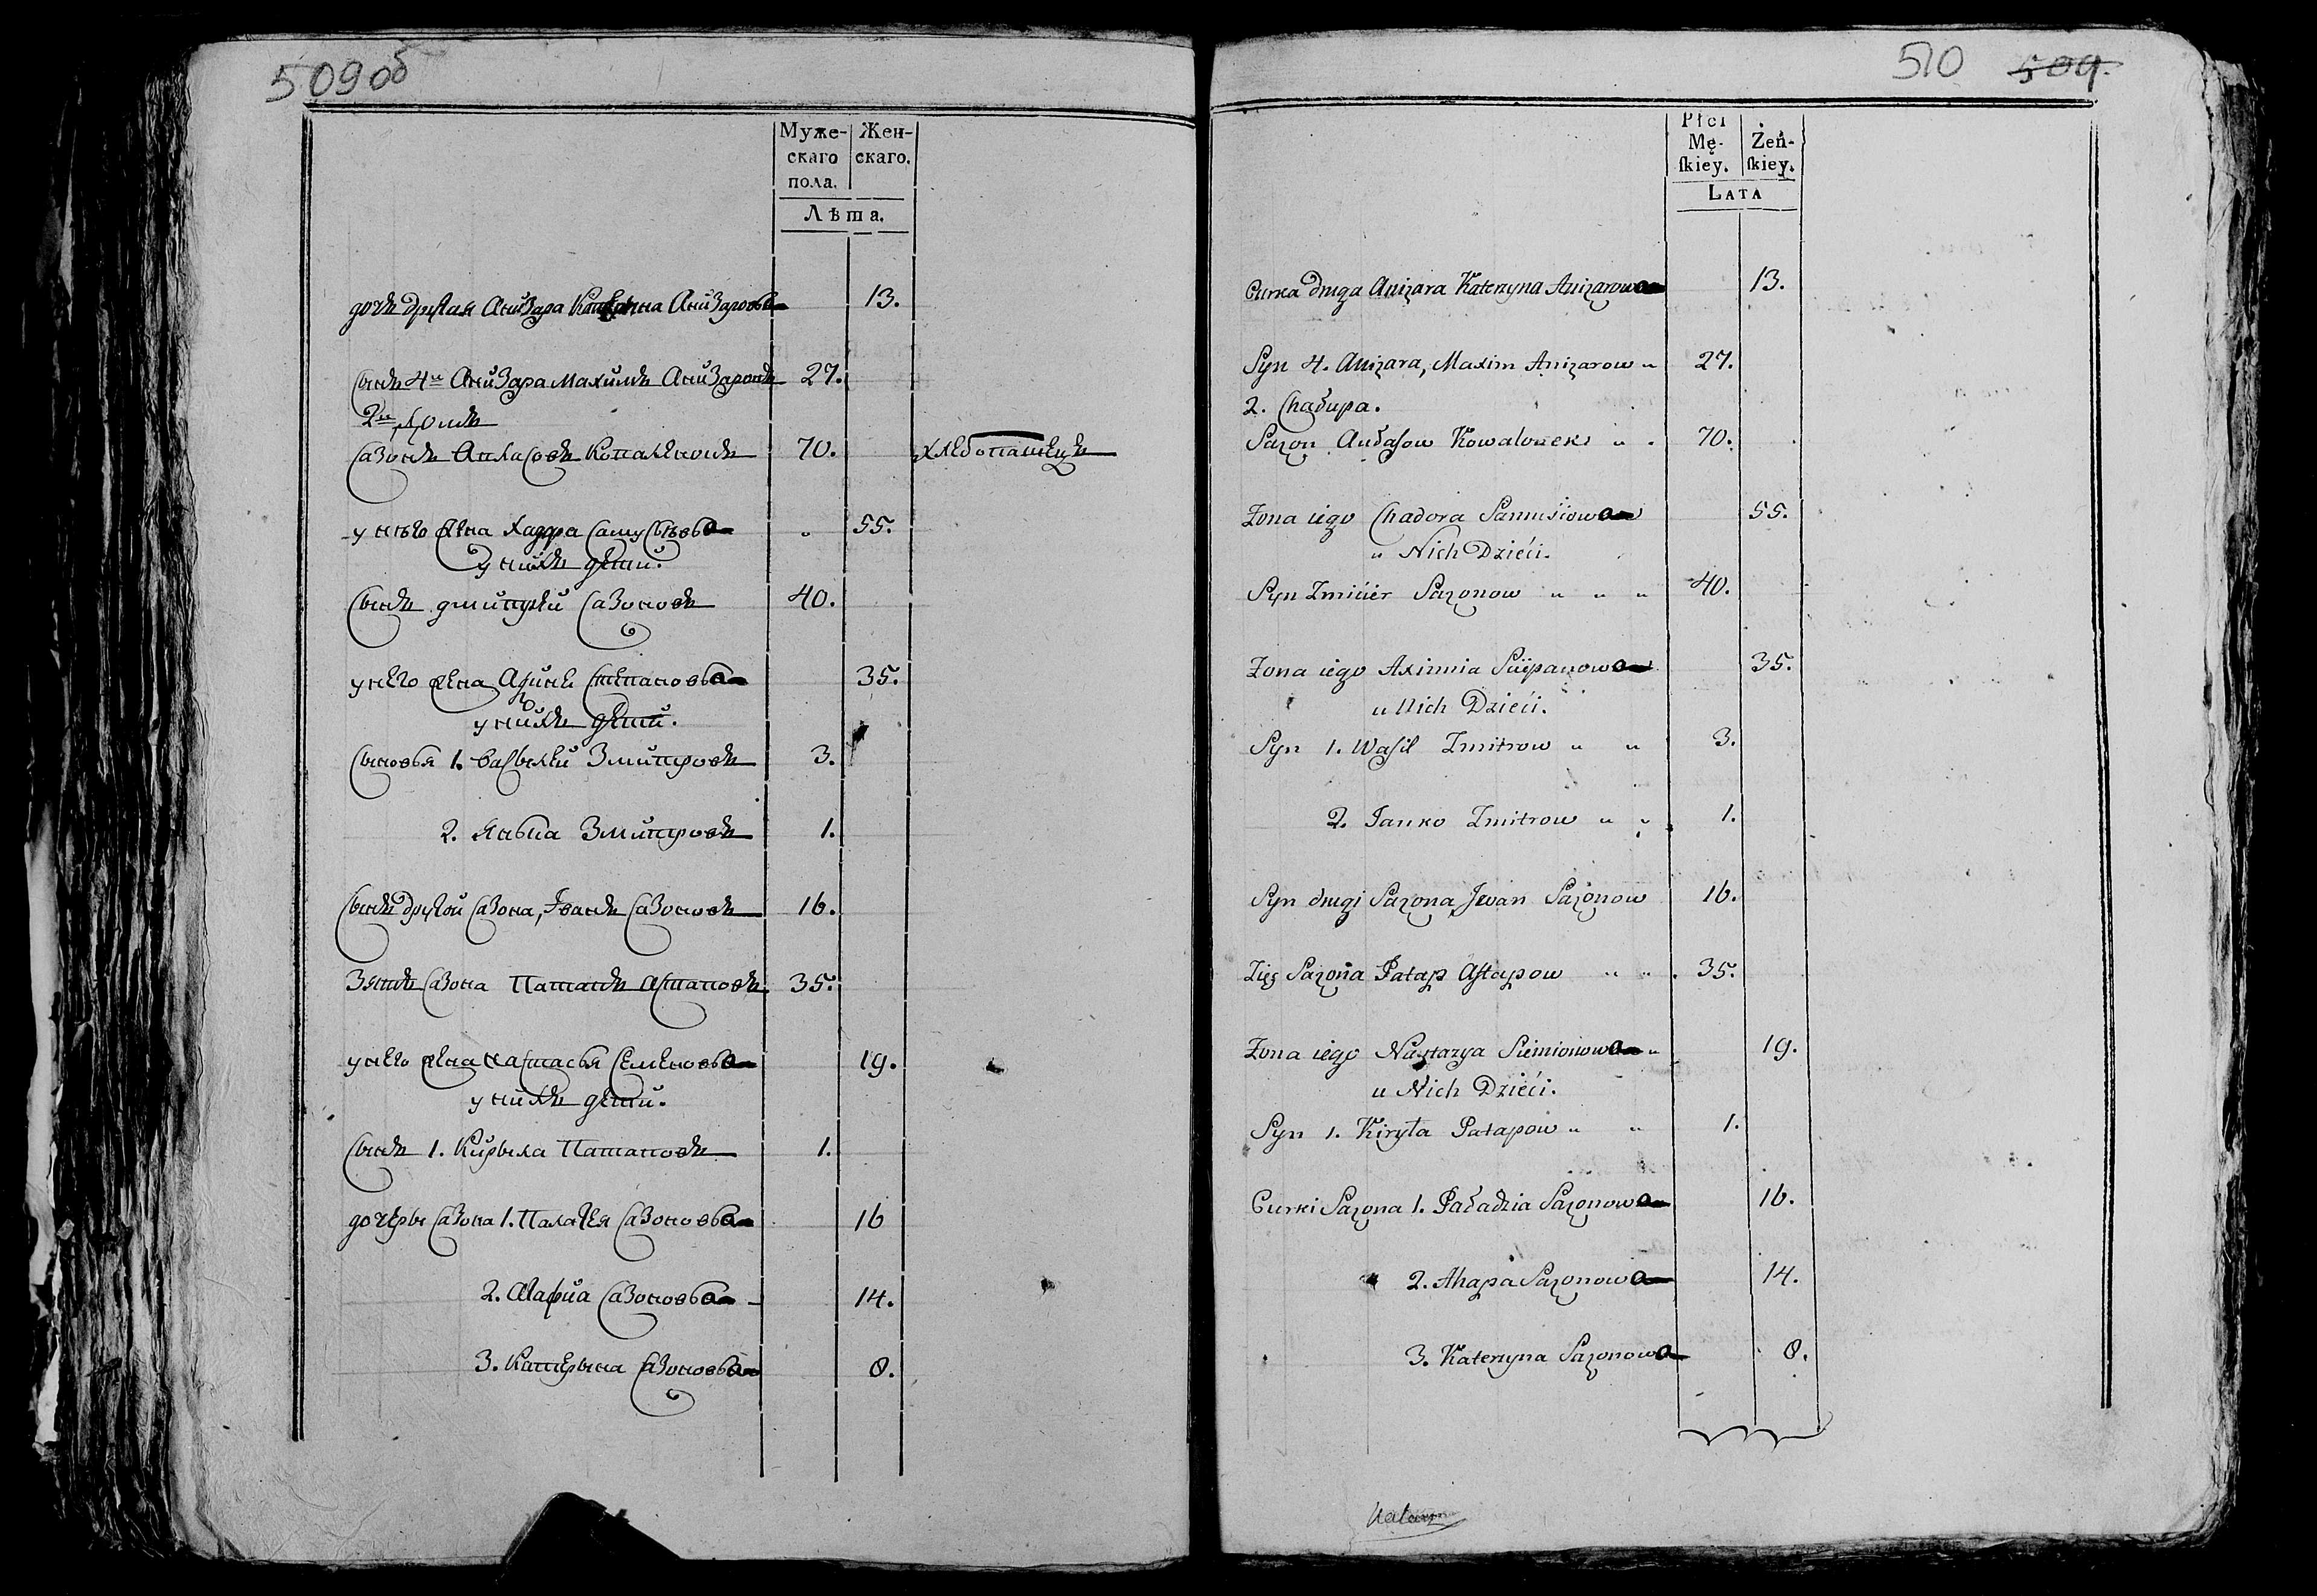 509об
Муже-
скаго
пола.
Жен-
скаго.
Лѣта.
дочь другая Анизара Катерина Анизарова 13.
сынъ 4й Анизара Махимъ Анизаровъ 27.
2й домъ
Сазонъ Апласовъ 70. хлебопашецъ
у нѣго жена Хадора Самусьѣва 55.
у нихъ дети.
сынъ дмитрей Сазоновъ 40.
у него жена Степанова 35.
у нихъ дети.
сыновья 1. василей Змитровъ 3.
2. Янька Змитровъ 1.
сынъ другой Сазона, Іванъ Сазоновъ 16.
Зять Сазона Патапъ Астаповъ 35.
у него жена настасья Семенова 19.
у нихъ дети.
сынъ 1. Кирыла Патаповъ 1.
дочеры Сазона 1. Палагея Сазонова 16
2. Сазонова 14.
3. Катерына Сазонова 8.
510 509.
Płci
Mę-
ſkiey.
Żeń-
ſkiey.
LATA
Curka druga Anizara Katerzyna Anizarowa 13.
Syn 4. Anizara, Maxim Anizarow „ 27.
2. Chałupa.
Sazon 70.
Zona iego Chadora Samusiowa 55.
u Nich Dzieći.
Syn Zmićier Sazonow „ „ „ 40.
Zona iego Axinnia Sćiepanowa 35.
u Nich Dzieći.
Syn 1. Waſil Zmitrow „ „ 3.
2. Janko Zmitrow „ „ 1.
Syn drugi Sazona Jwan Sazonow 16.
Zięć Sazona Patap Aſtapow „ „ 35.
Zona iego Nastazya Siemionowa „ 19.
u Nich Dzieći.
Syn 1. Kiryła Patapow „ „ 1.
Curki Sazona 1. Sazonowa 16.
2. Ahapa Sazonowa 14.
3. Katerzyna Sazonowa 8.